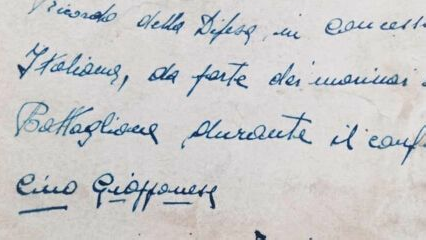 Ricordo della Difesa, in concess
Italiana, da parte dei marinai
Battaglione durante il conf
Cino Giapponese